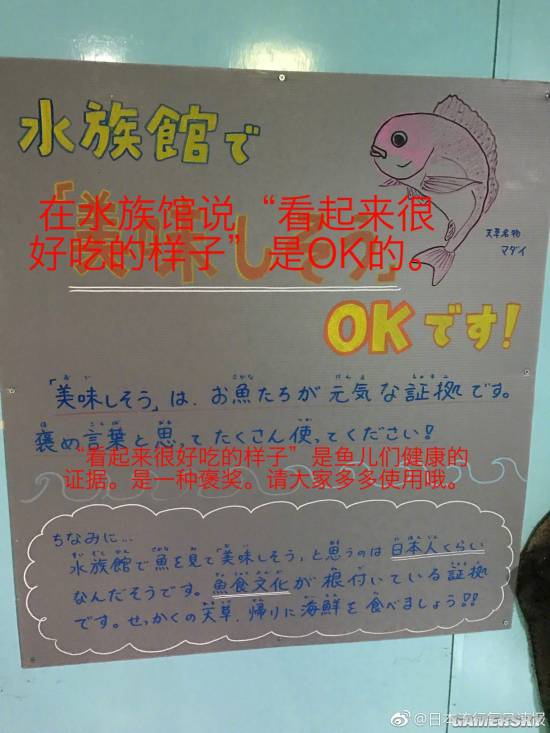 水族館で
「美味しそう」
在水族馆说“看起来很
好吃的样子”是OK的。
天草名物
マダイ
OKです!
「美味しそう」は、お魚たちが元気な証拠です。
褒め言葉と思ってたくさん使ってください!
“看起来很好吃的样子”是鱼儿们健康的
证据。是一种褒奖。请大家多多使用哦。
ちなみに…
水族館で魚を見て「美味しそう」と思うのは日本人くらい
なんだそうです。魚食文化が根付いている証拠
です。せっかくの天草、帰りに海鮮を食べましょう!!
GAMERSKY